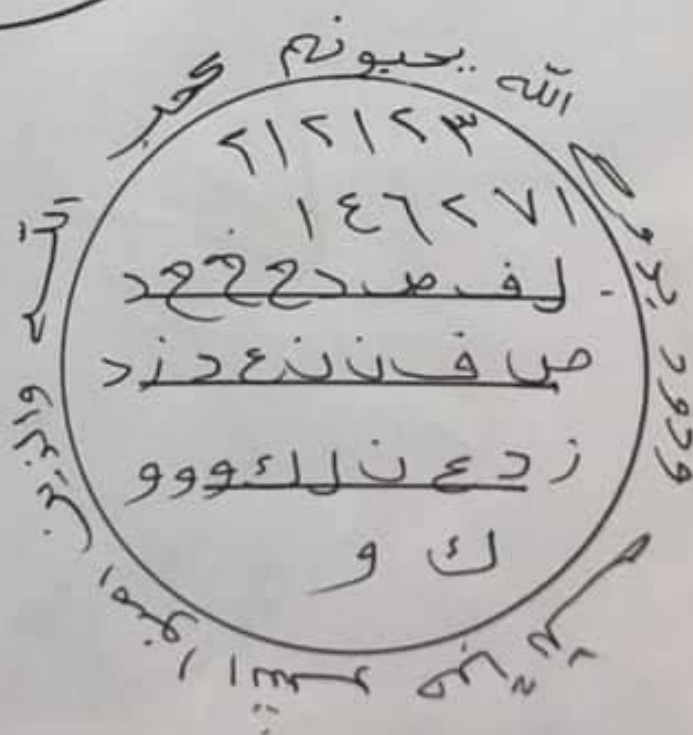 يحبونهم كحب
الله والذين امنوا اشد
الله
ودود يدوح
٢١٢١٢٣
١٤٦٢٧١
ل ف ص د ح خ خ د
ص ف ن ن ع د ز د
ز د ع ن ل ك و و و
ك و